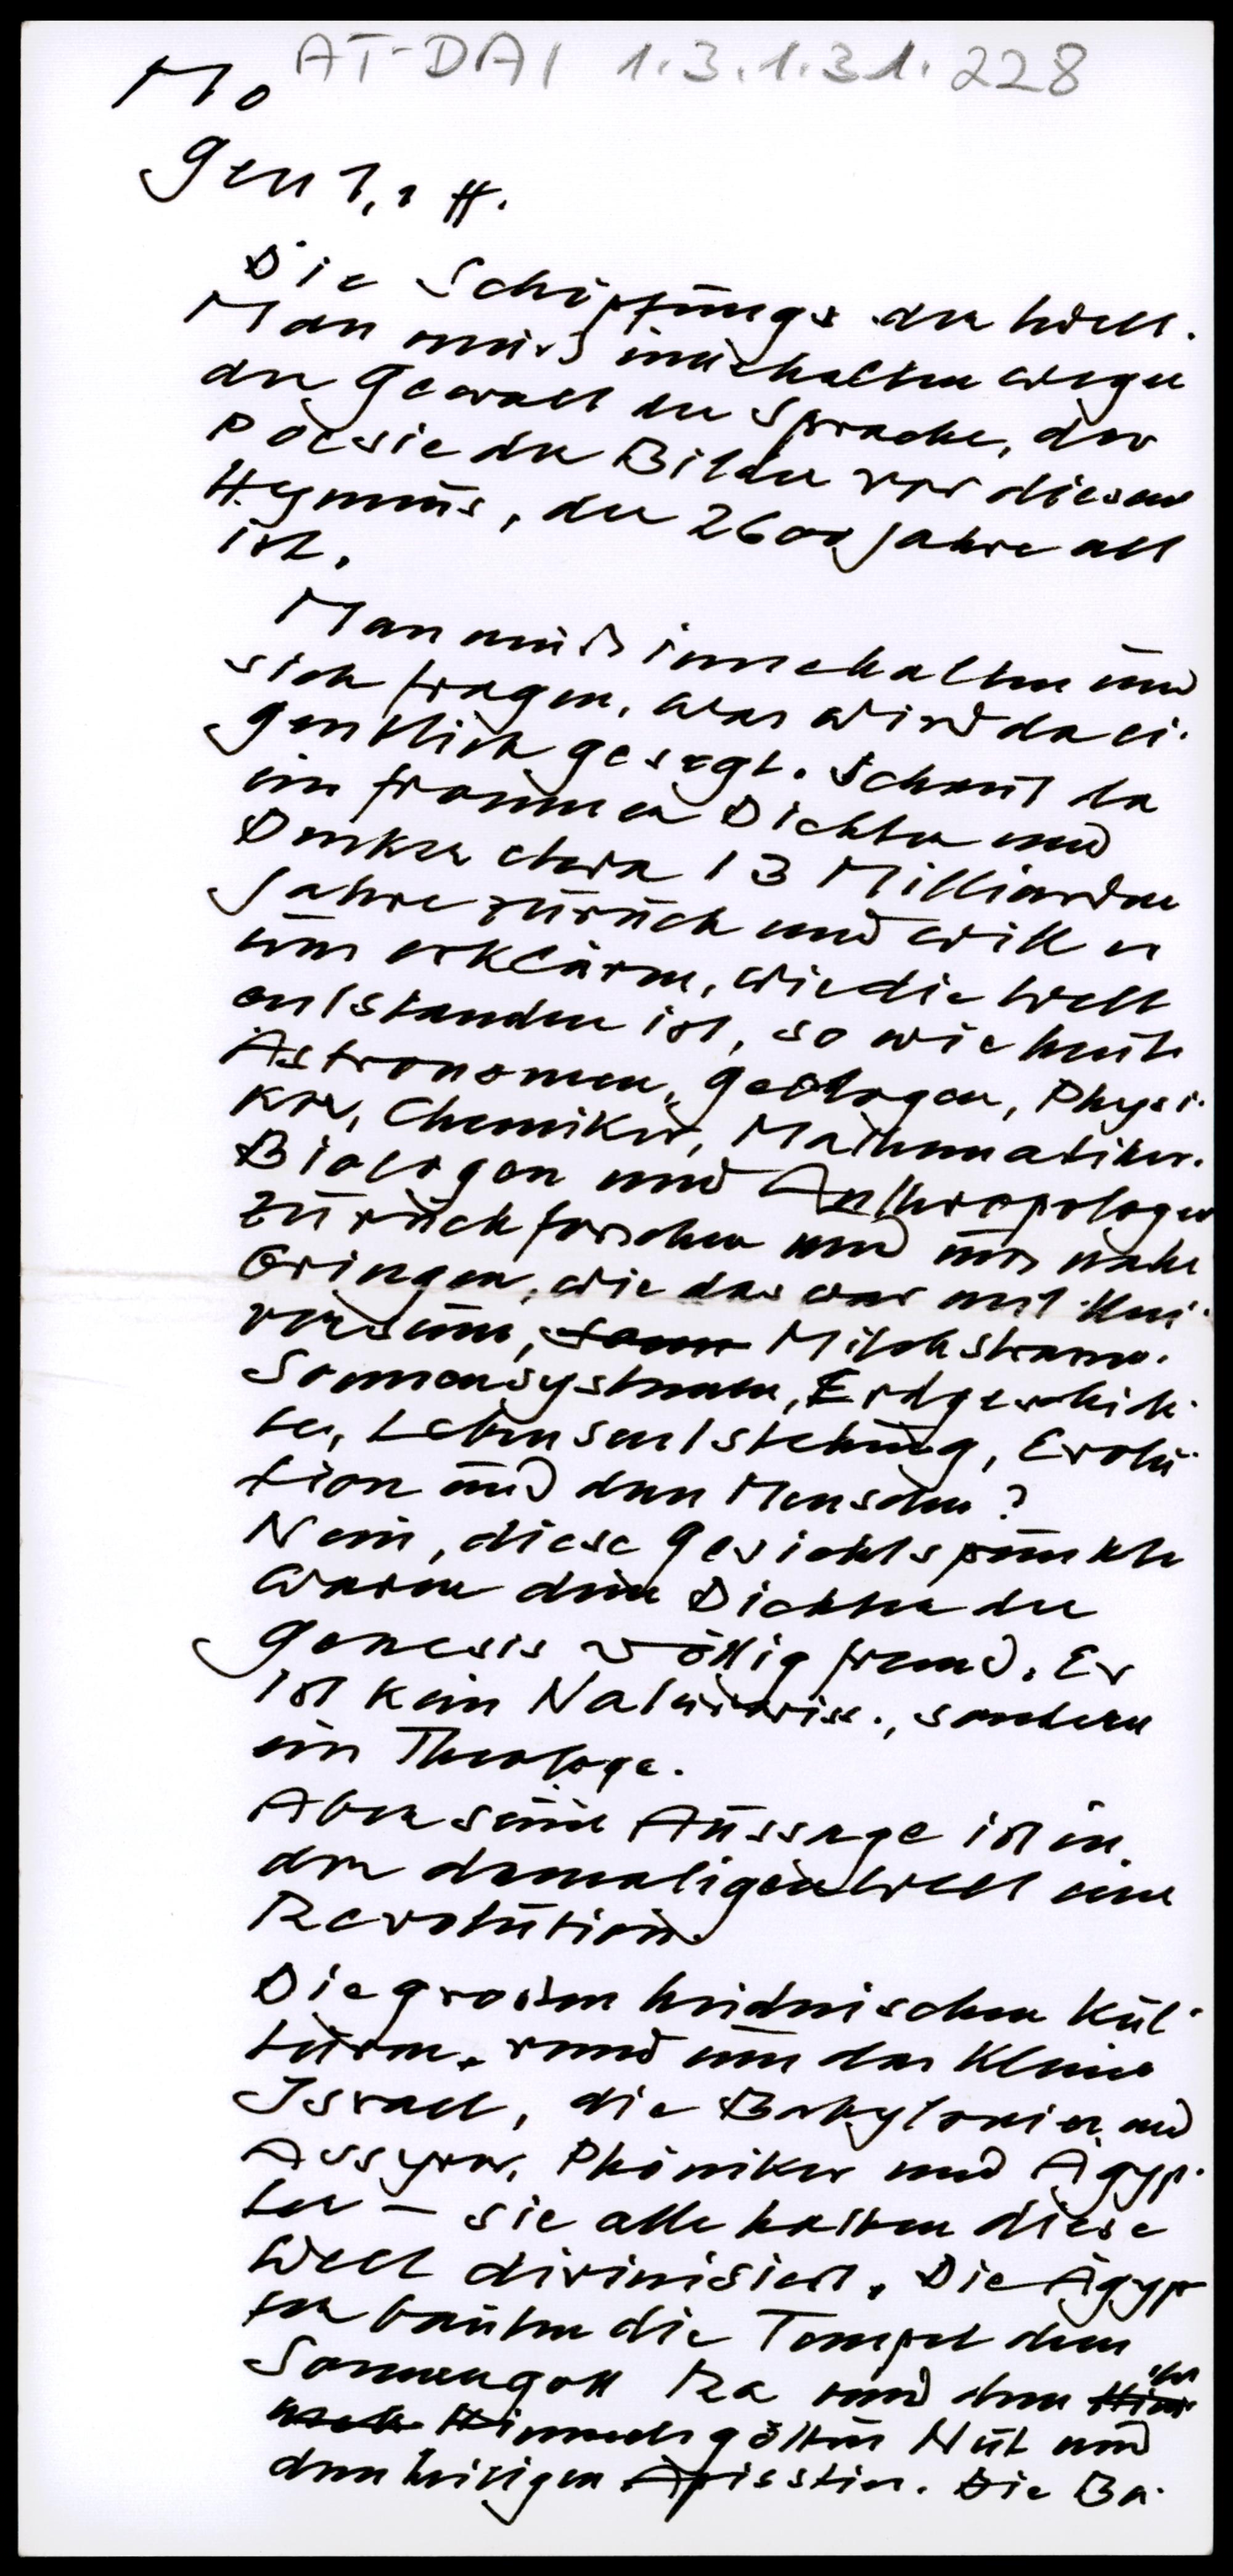 AT-DAI 1.3.1.31.228
Mo
Gen 1,1 ff.
Die Schöpfung der Welt.
Man muß innehalten wegen
der Gewalt der Sprache, der
Poesie der Bilder vor diesem
Hymnus, der 2600 Jahre alt
ist.
Man muß innehalten und
sich fragen, was wird da ei-
gentlich gesagt. Schaut da
ein frommer Dichter und
Denker etwa 13 Milliarden
Jahre zurück und will er
uns erklären, wie die Welt
entstanden ist, so wie heute
Astronomen, Geologen, Physi-
ker, Chemiker, Mathematiker.
Biologen und Anthropologen
zurückforschen und uns nahe
bringen, wie das war mit Uni-
versum, Milchstrasse.
Sonnensystemen, Erdgeschich-
te, Lebensentstehung, Evolu-
tion und dem Menschen?
Nein, diese Gesichtspunkte
waren dem Dichter der
Genesis völlig fremd. Er
ist kein Naturwiss., sondern
ein Theologe.
Aber seine Aussage ist in
der damaligen Welt eine
Revolution.
Die grossen heidnischen Kul-
turen, rund um das kleine
Israel, die Babylonier und
Assyrer, Phöniker und Ägyp-
ter - sie alle hatten diese
Welt divinisiert. Die Ägyp-
ter bauten die Tempel dem
Sonnengott Ra und der
Himmelsgöttin Nut und
dem heiligen Apisstier. Die Ba-